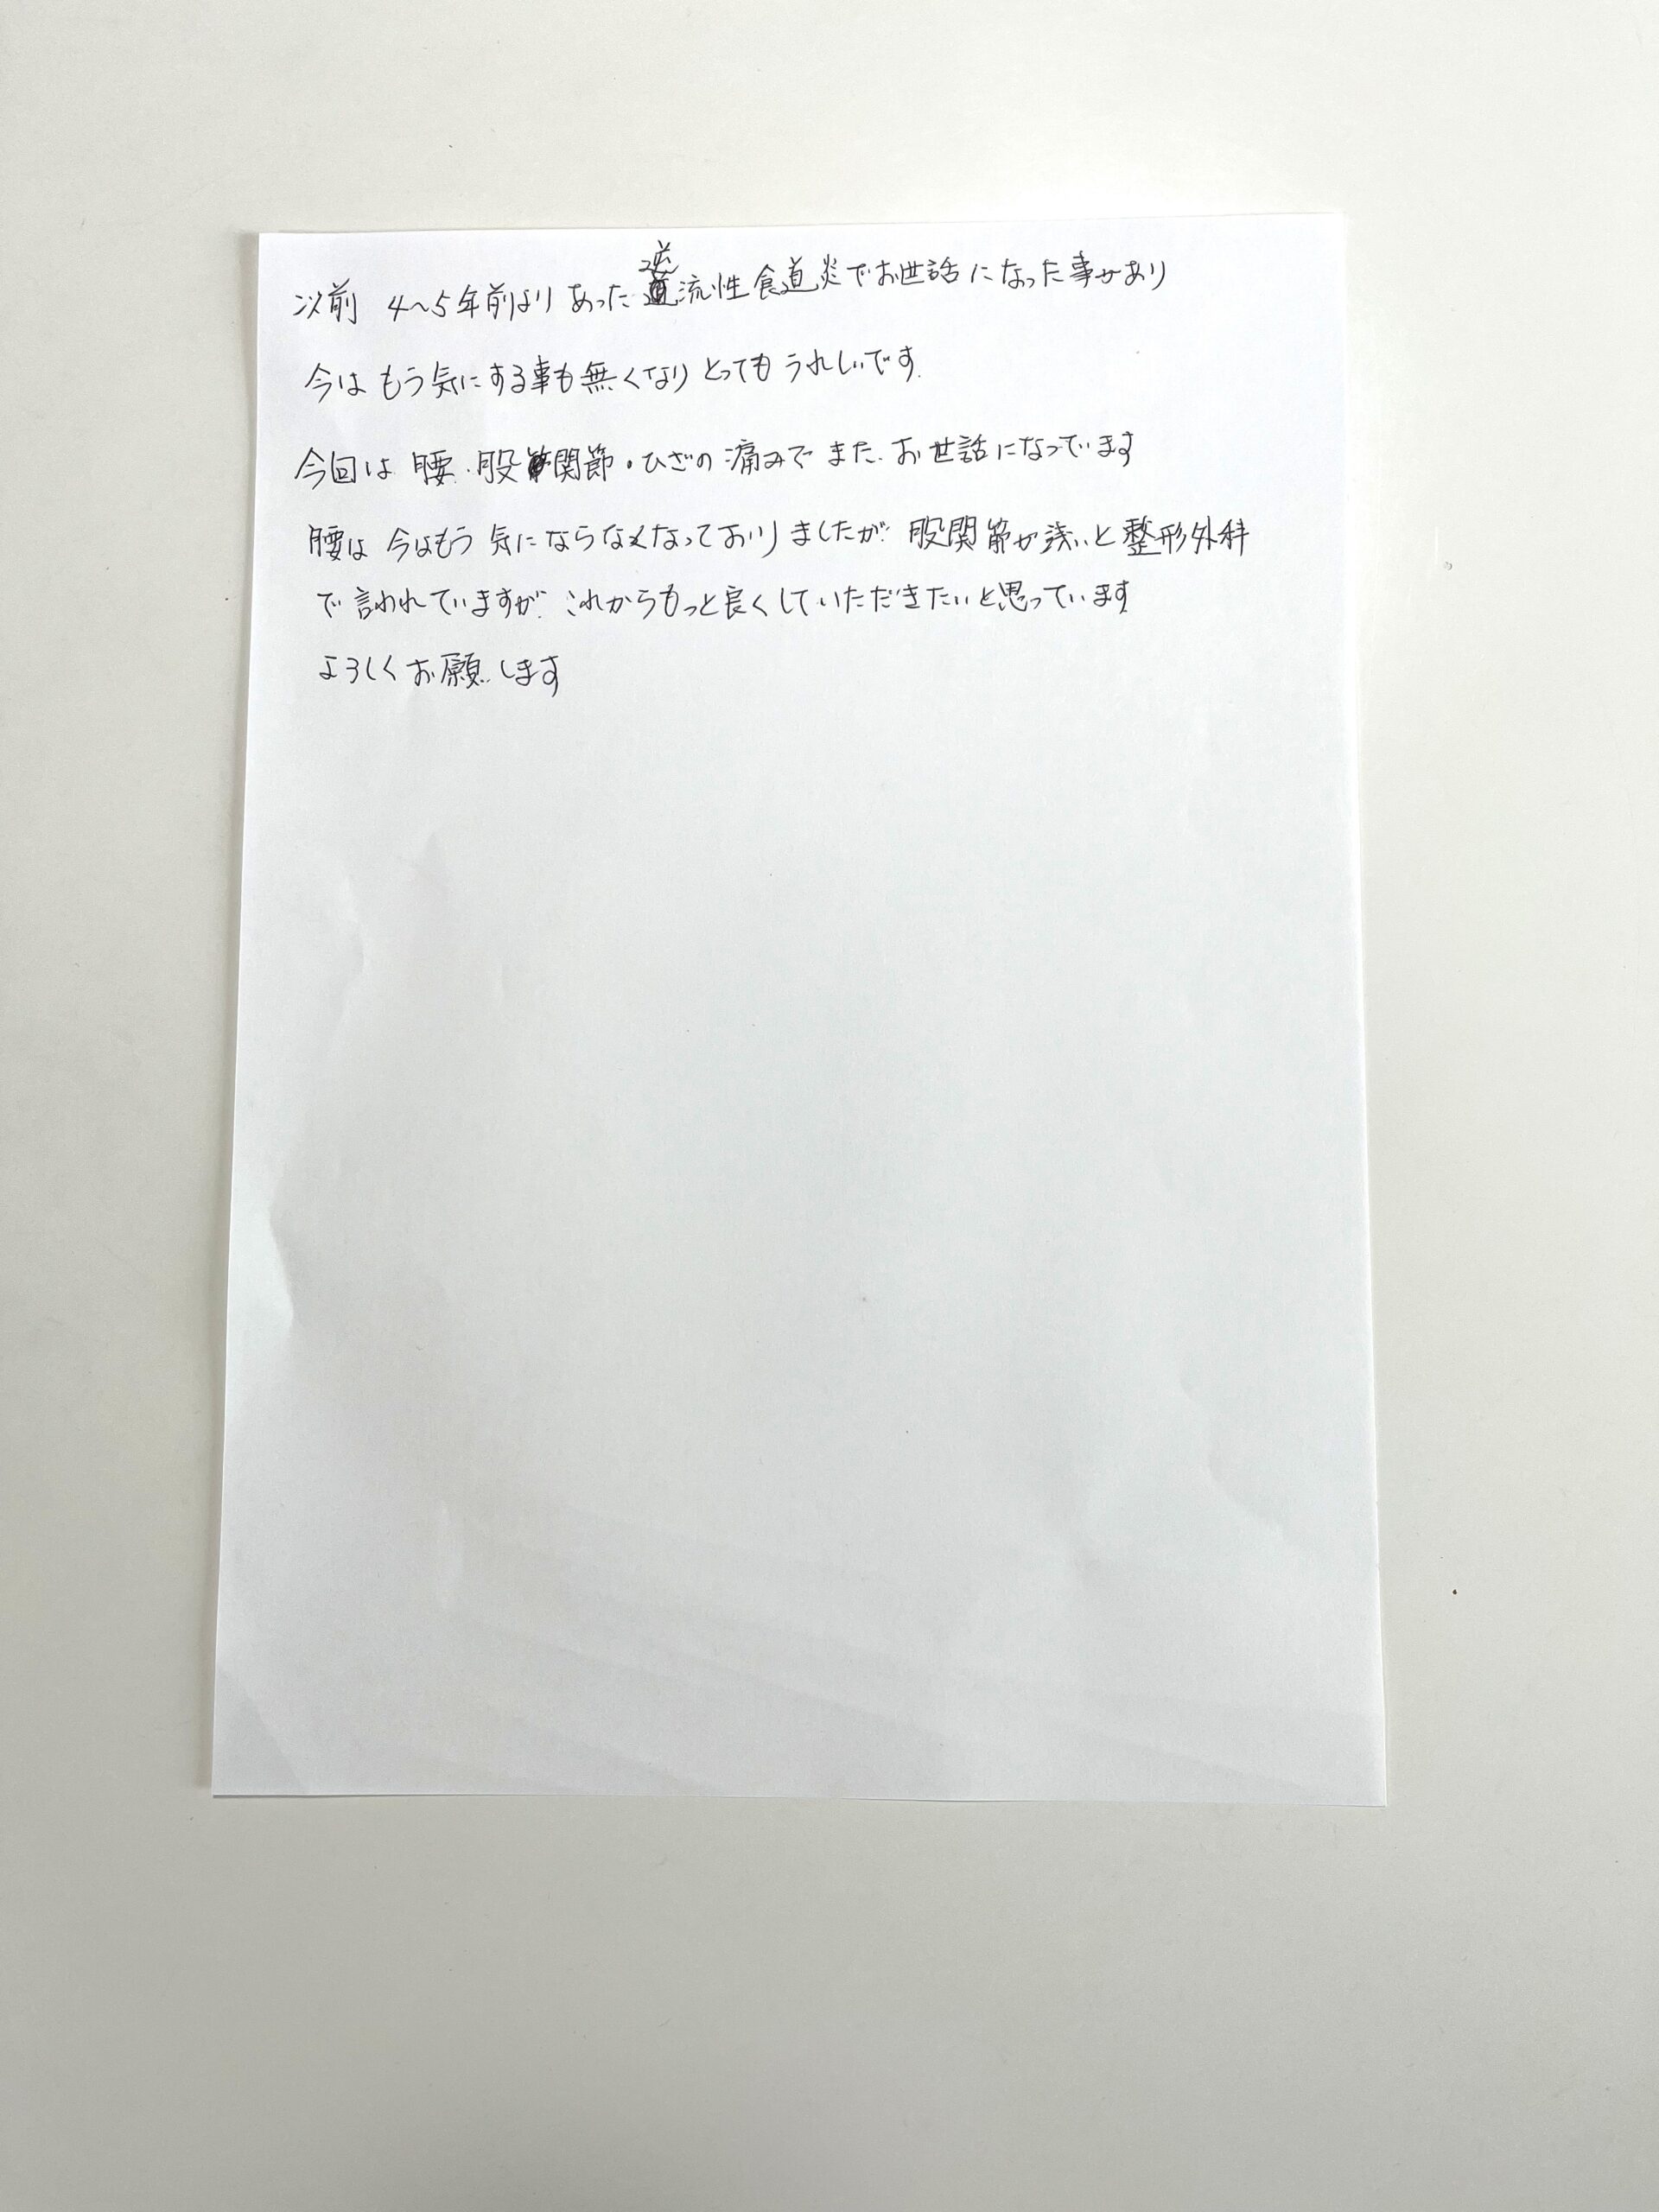 以前 4~5年前より あった逆流性食道炎でお世話になった事があり
今は もう気にする事も無くなり とっても うれしいです.
今回は 腰.股関節・ひざの痛みで また.お世話になっています
腰は 今はもう 気にならなくなっておりましたが 股関節が浅いと整形外科
で言われていますが. これからもっと良くしていただきたいと思っています
よろしくお願いします